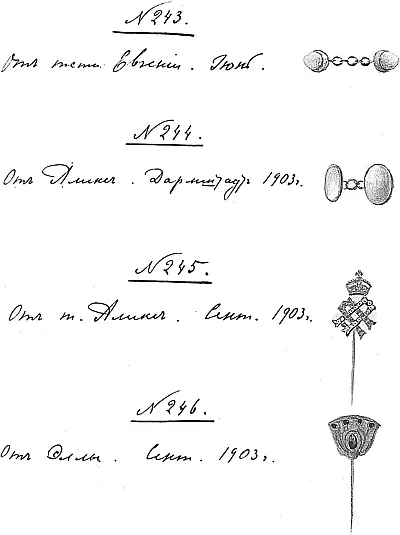 N 243.
Отъ тети Евгеніи. Iюнь.
N 244.
Отъ Аликсъ. Дармштадтъ 1903г.
N 245.
Отъ т. Аликсъ. Сент. 1903г.
N 246.
Отъ Эллы. Сент. 1903г.